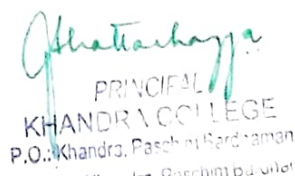 Bhattacharyya
PRINCIPAL
KHANDRA COLLEGE
P.O.: Khandra, Paschim Bardhaman
Khandra, Paschim